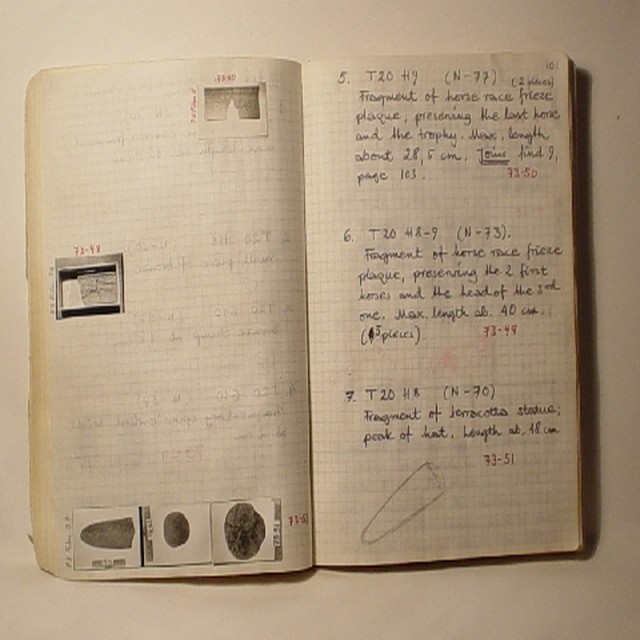 73-50
73-48
73-51
101
5. T20 H9 (N-77) (2 pieces)
Fragment of horse race frieze
plaque, preserving the last horse
and the trophy. Max. length
about 28,5 cm. Joins find 9,
page 103. 73-50
6. T20 H8-9 (N-73).
Fragment of horse race frieze
plaque, preserving the 2 first
horses and the head of the 3rd
one. Max. length ab. 40 cm.
(5 pieces) 73-48
7. T20 H8 (N-70)
Fragment of terracotta statue;
peak of hat. Length ab. 18 cm
73-51